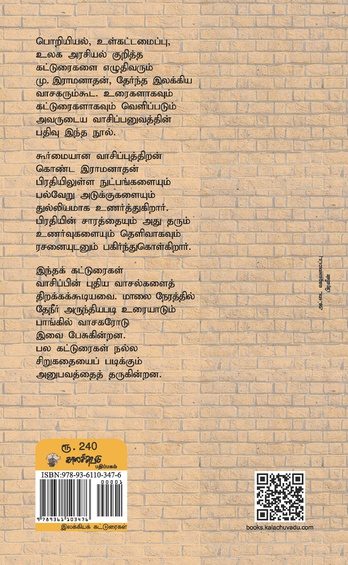 பொறியியல், உள்கட்டமைப்பு,
உலக அரசியல் குறித்த
கட்டுரைகளை எழுதிவரும்
மு. இராமனாதன், தேர்ந்த இலக்கிய
வாசகரும்கூட. உரைகளாகவும்
கட்டுரைகளாகவும் வெளிப்படும்
அவருடைய வாசிப்பனுவத்தின்
பதிவு இந்த நூல்.
கூர்மையான வாசிப்புத்திறன்
கொண்ட இராமனாதன்
பிரதியிலுள்ள நுட்பங்களையும்
பல்வேறு அடுக்குகளையும்
துல்லியமாக உணர்த்துகிறார்.
பிரதியின் சாரத்தையும் அது தரும்
உணர்வுகளையும் தெளிவாகவும்
ரசனையுடனும் பகிர்ந்துகொள்கிறார்.
இந்தக் கட்டுரைகள்
வாசிப்பின் புதிய வாசல்களைத்
திறக்கக்கூடியவை. மாலை நேரத்தில்
தேநீர் அருந்தியபடி உரையாடும்
பாங்கில் வாசகரோடு
இவை பேசுகின்றன.
பல கட்டுரைகள் நல்ல
சிறுகதையைப் படிக்கும்
அனுபவத்தைத் தருகின்றன.
ரூ. 240
காலச்சுவடு
பதிப்பகம்
ISBN:978-93-6110-347-6
00001
9 789361 103476
இலக்கியக் கட்டுரைகள்
books.kalachuvadu.com